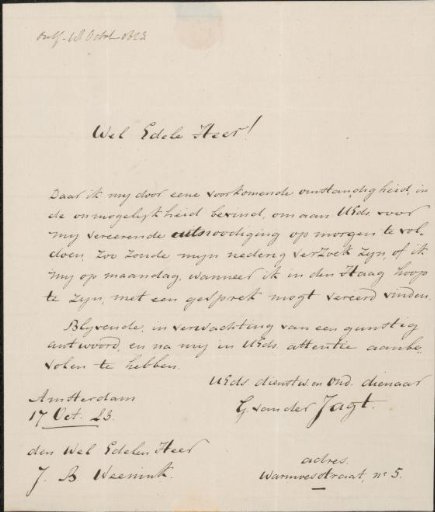 Wel Edele Heer!
Daar ik my door eene voorkomende omstandigheid, in
de onmogelykheid bevind, om aan UEds voor
my vereerende uitnoodiging op morgen te vol-
doen, zoo zoude mijn nederig verzoek zyn, of ik
my op maandag, wanneer ik in den Haag hoop
te zyn, met een gesprek mogt vereerd vinden.
Blyvende, in verwachting van een gunstig
antwoord, en na my in UEds attentie aanbe-
volen te hebben.
UEds dienstw en Ond. dienaar
G van der Jagt.
Amsterdam
17 Oct. 23.
den Wel Edelen Heer
J. B Weenink.
adres.
Warmoesstraat, no 5.